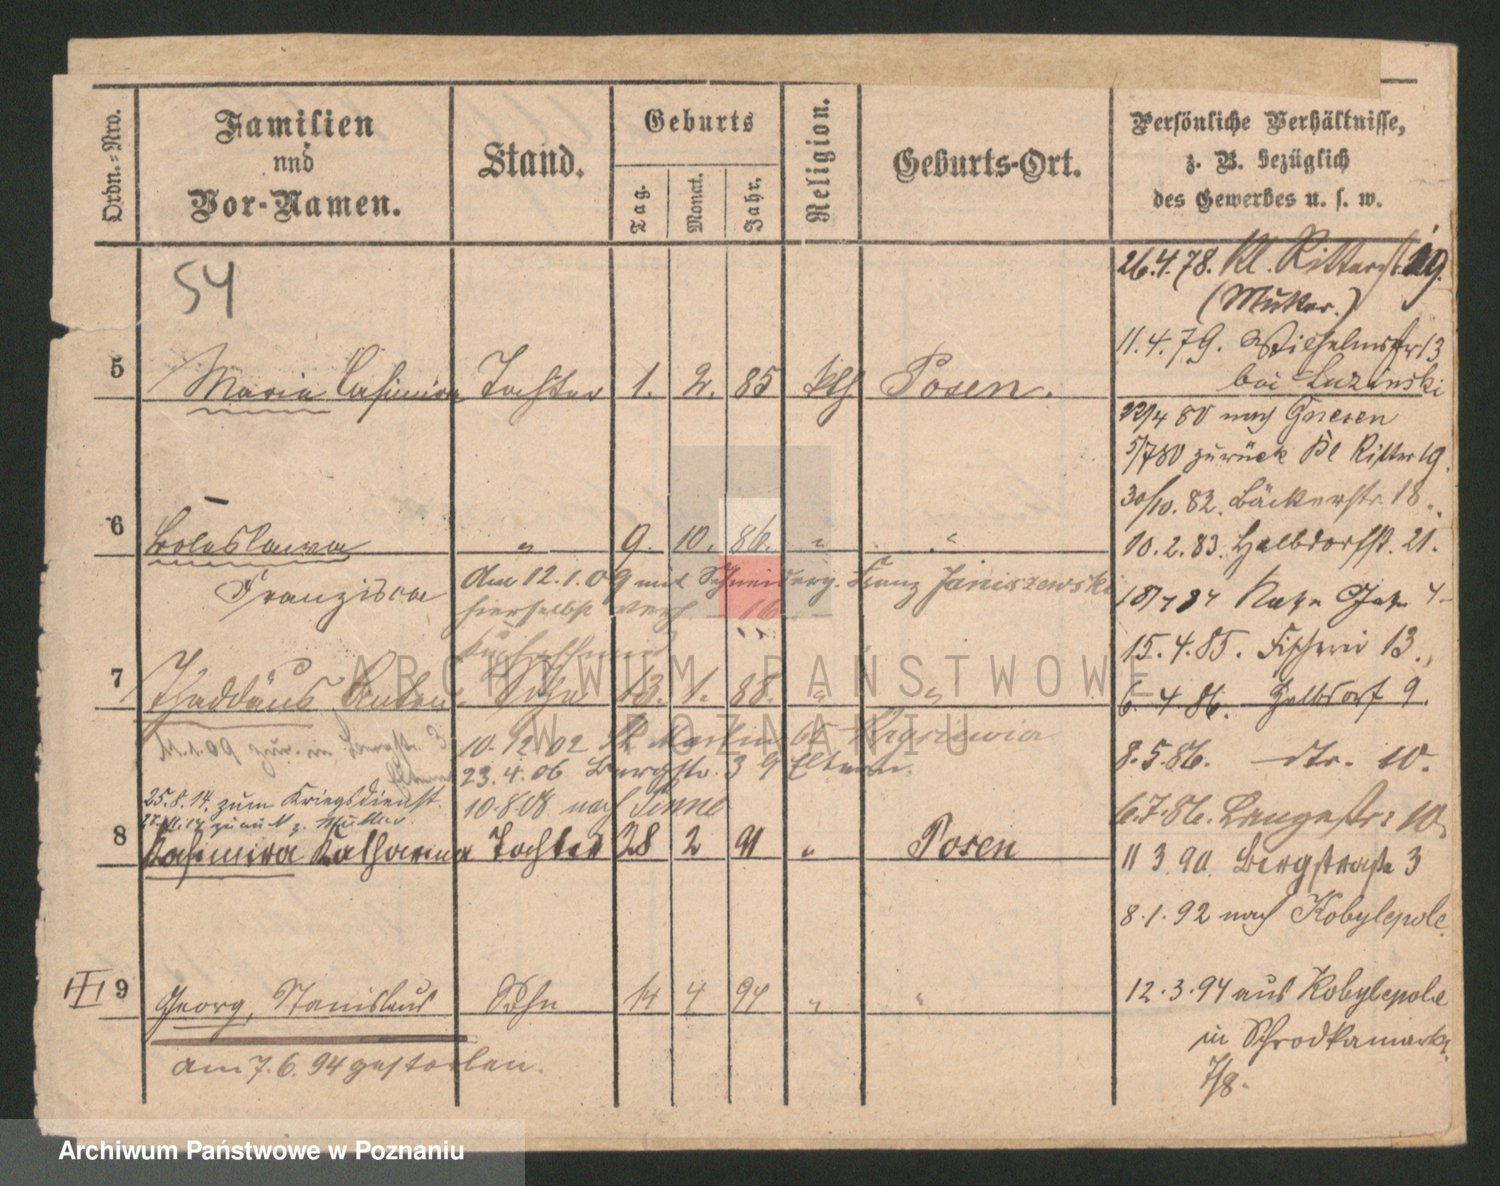 Ordn.-Nro.
Familien
und
Vor-Namen.
Stand.
Geburts
Tag.
Monat.
Jahr.
Religion.
Geburts-Ort.
Persönliche Verhältnisse,
z. B. bezüglich
des Gewerbes u. s. w.
54
26.4.78. Kl. Ritterstr. 19.
(Mutter.)
11.4.79. Wilhelmsstr 13
bei Luzinski
5 Maria Casimira Tochter 1. 2. 85 kth Posen.
22/4 80 nach Gnesen
5/7 80 zurück Kl Ritter 19.
30/10. 82. Bäckerstr. 18.
6 Boleslawa " 9. 10. 86. " "
10.2.83. Halbdorfstr. 21.
Franzisca
Am 12.1.09 mit Schneiderg. Franz Janiszewski
hierselbst verh.
18/7 84
15.4.85. Fischerei 13.
7 Thaddäus Anton Sohn 13. 1. 88. " "
6.4.86. Halbdorf 9.
11.1.09 zur. in Bergstr. 3
Eltern
10.12.02 St Martin 65
23.4.06 Bergstr. 3 Eltern.
8.5.86. dto. 10.
25.8.14. zum Kriegsdienst
10.8.08 nach Pinne
6.7.86. Langestr: 10.
8 Kasimira Katharina Tochter 28 2 91 " Posen
11 3.90. Bergstraße 3
8.1.92 nach Kobylepole.
9 Georg, Stanislaus Sohn 14 4 94 " "
12.3.94 aus Kobylepole
in Schrodkamarkt
7/8.
am 7.6.94 gestorben.
ARCHIWUM PAŃSTWOWE
W POZNANIU
Archiwum Państwowe w Poznaniu